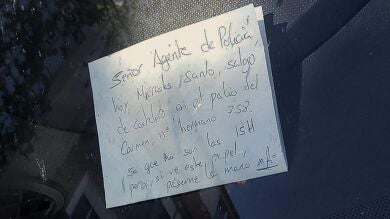 Señor Agente de Policía,
hoy, Miércoles Santo, salgo
de costalero en el palio del
Carmen, nº hermano 758.
Sé que no son las 15H
pero, si ve este papel,
páseme la mano